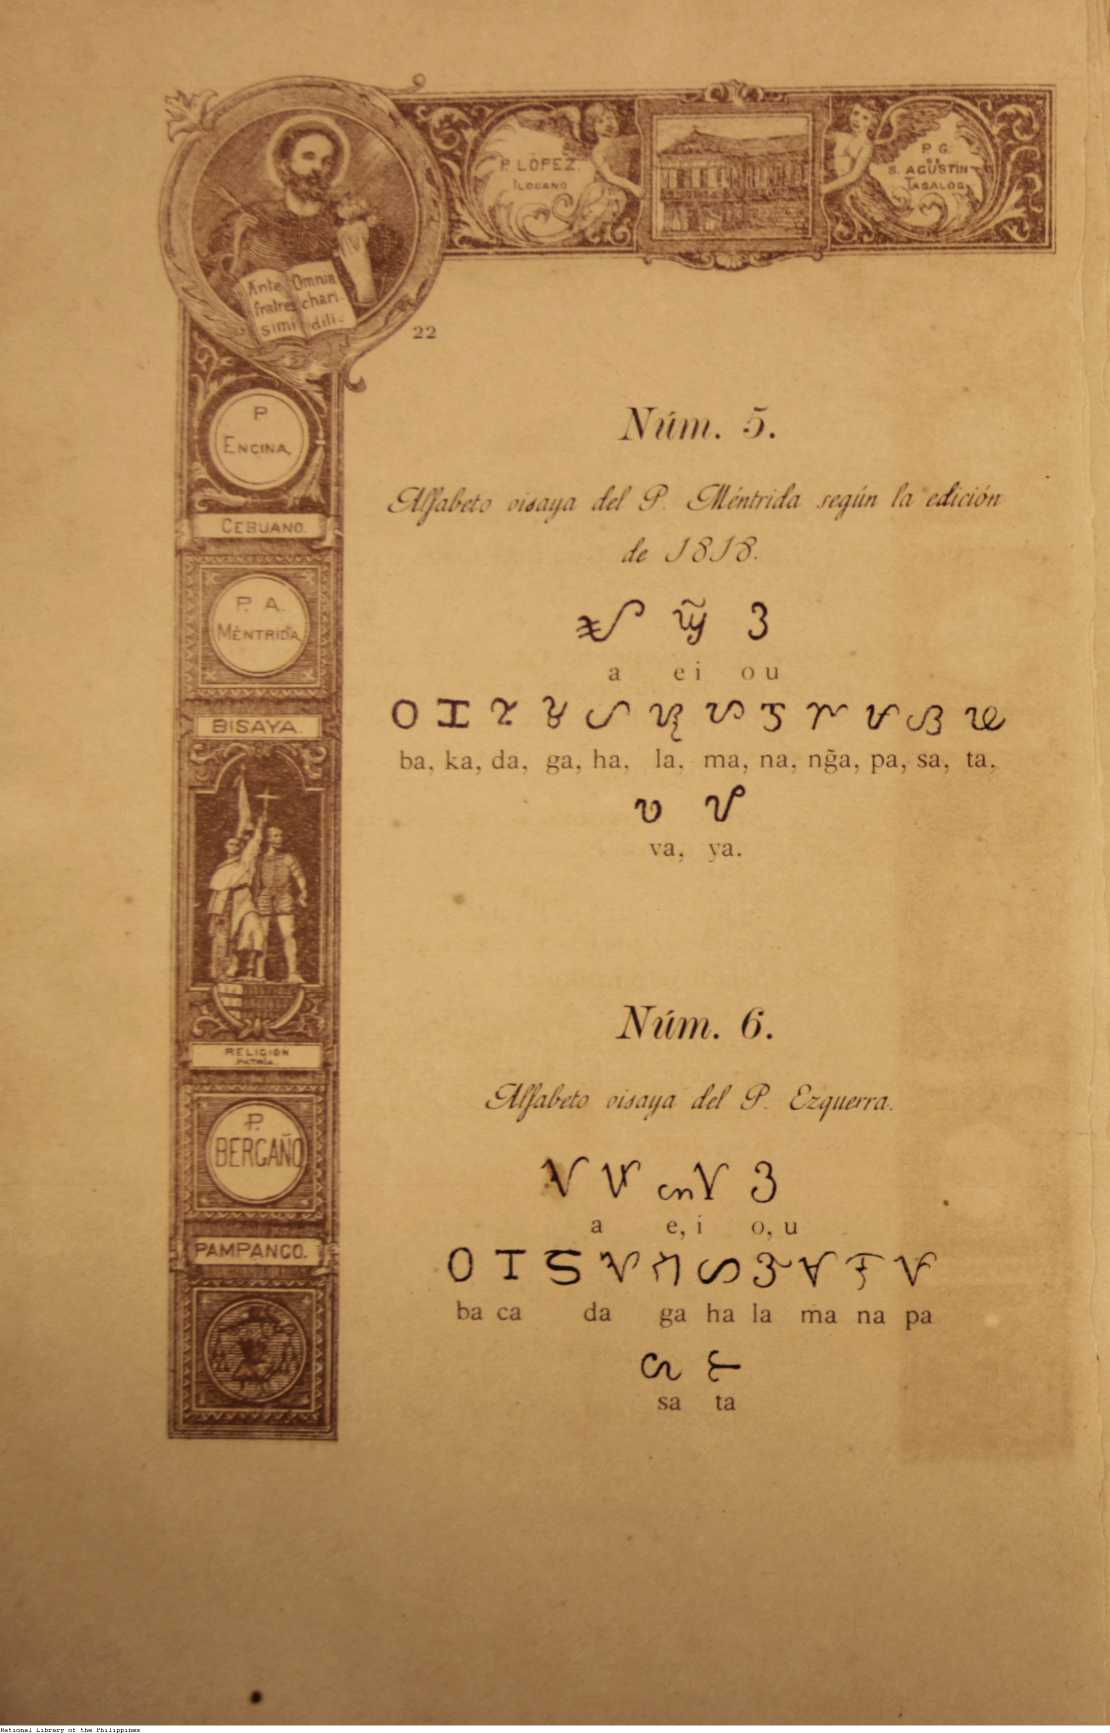 P. LÓPEZ.
ILOCANO
P. G.
DE
S. AGUSTIN
TAGALOG
Ante Omnia
fratres chari-
simi dili-
22
P
ENCINA,
CEBUANO.
P. A.
MÉNTRIDA,
BISAYA.
RELIGION
PATRIA.
P.
BERGAÑO
PAMPANGO.
Núm. 5.
Alfabeto visaya del P. Méntrida según la edición
de 1818.
a e i o u
ba, ka, da, ga, ha, la, ma, na, ng̃a, pa, sa, ta,
va, ya.
Núm. 6.
Alfabeto visaya del P. Ezguerra.
a e, i o, u
ba ca da ga ha la ma na pa
sa ta
National Library of the Philippines